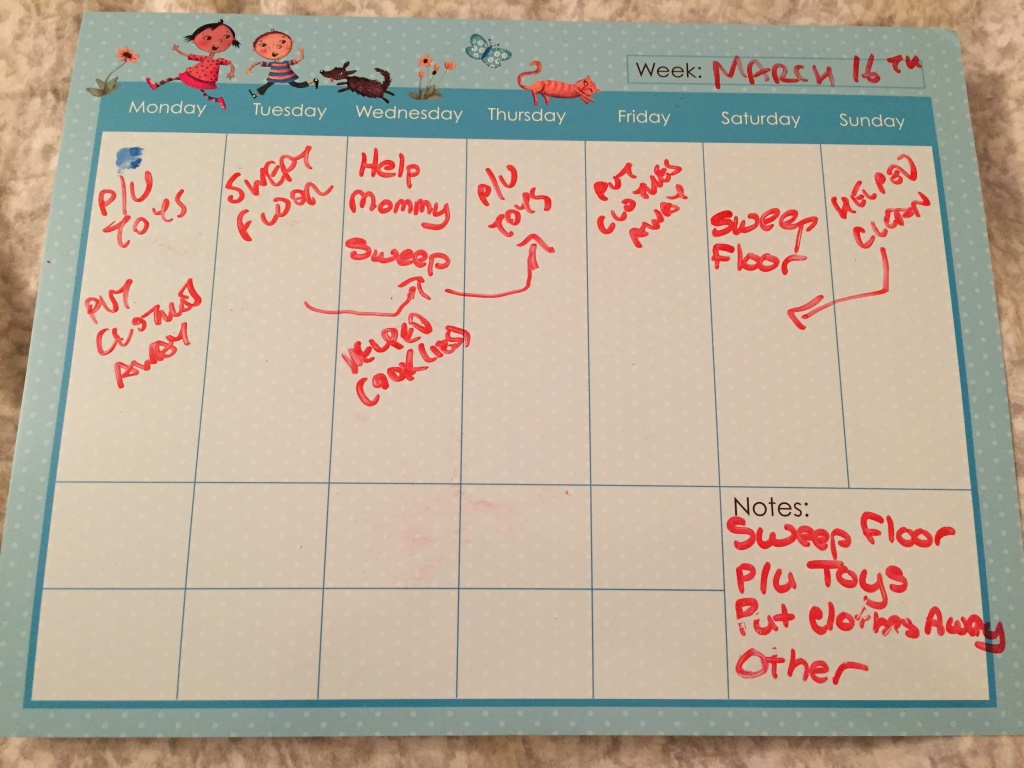 Week: MARCH 16TH
Monday Tuesday Wednesday Thursday Friday Saturday Sunday
P/U
TOYS
PUT
CLOTHES
AWAY
SWEPT
FLOOR
Help
Mommy
Sweep
HELPED
COOK
P/U
TOYS
PUT
CLOTHES
AWAY
Sweep
Floor
HELPED
CLEAN
Notes:
Sweep Floor
P/u Toys
Put Clothes Away
Other